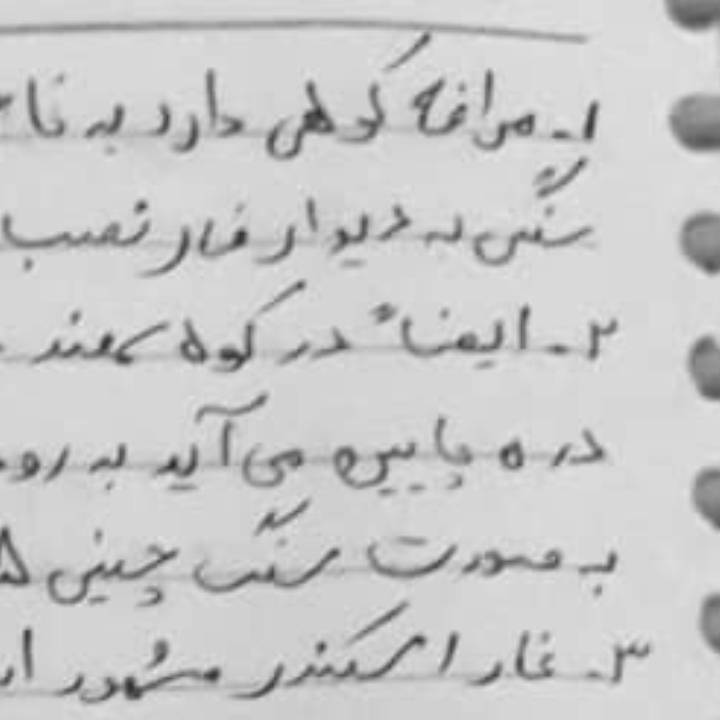 ۱- مراغه کوهی دارد به نا
سنگی به دیوار غار نصب
۲- ایضاً در کوه سهند
دره پایین می آید به رو
به صورت سنگ چینی ۵
۳- غار اسکندر مشهور ا